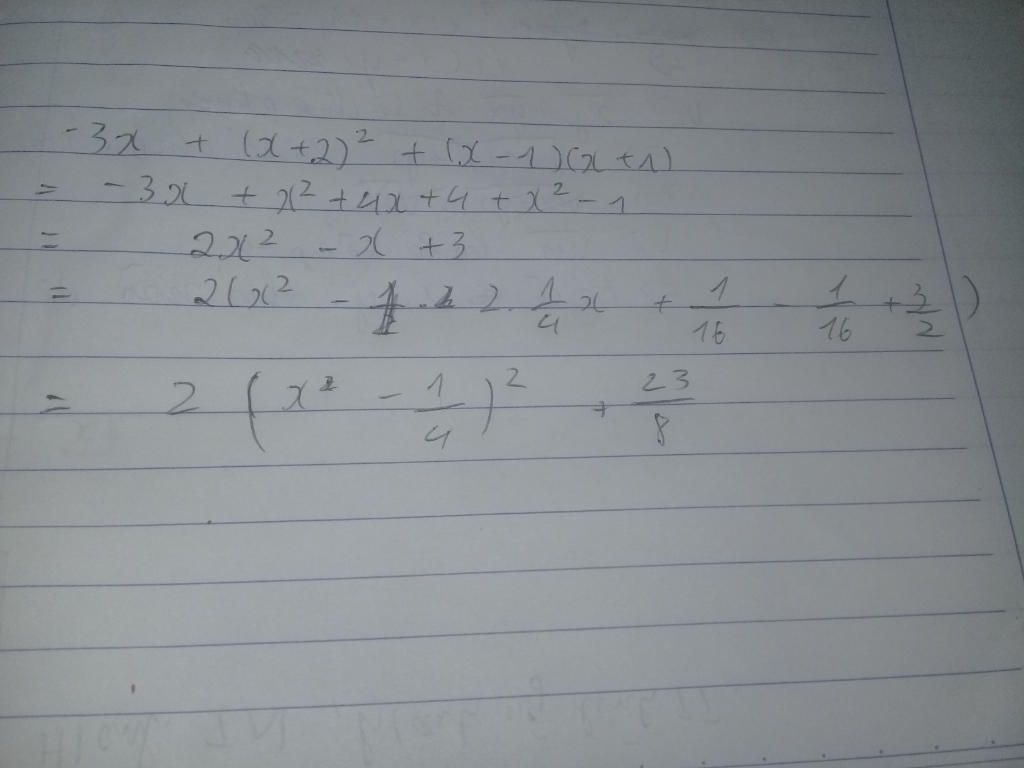 -3x + (x+2)² + (x-1)(x+1)
= -3x + x² + 4x + 4 + x² - 1
= 2x² - x + 3
= 2(x² - 2. 1/4 x + 1/16 - 1/16 + 3/2)
= 2 (x² - 1/4)² + 23/8